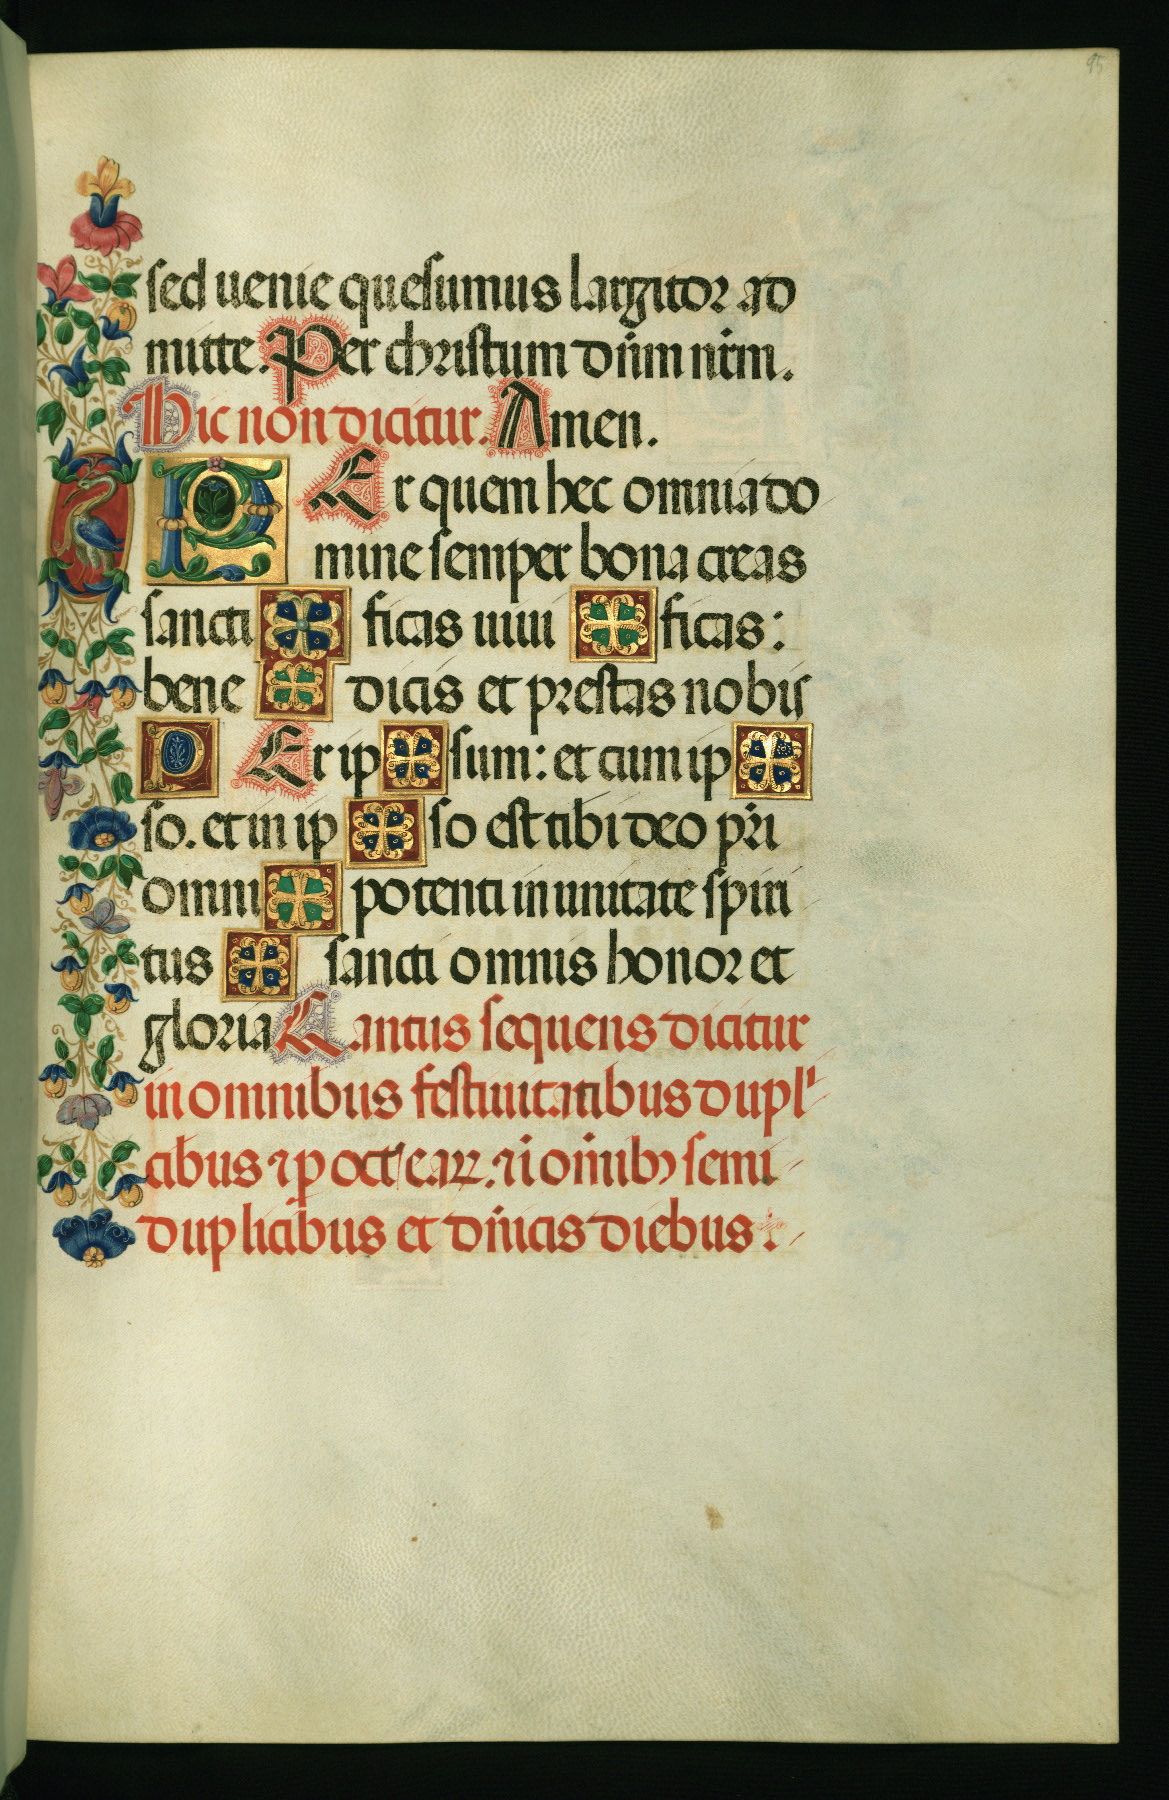 95
sed uenie quesumus largitor ad
mitte. Per christum dn̄m nr̄m.
Hic non dicitur. Amen.
PEr quem hec omnia do
mine semper bona creas
sancti ✠ ficas uiui ✠ ficas:
bene ✠ dicis et prestas nobis
PEr ip ✠ sum: et cum ip ✠
so. et in ip ✠ so est tibi deo pr̄i
omni ✠ potenti in unitate spiri
tus ✠ sancti omnis honor et
gloria Cantus sequens dicitur
in omnibus festiuitatibus dupli
cibus ⁊ p̱ octa eaꝝ. ⁊ i om̄ibꝫ semi
duplicibus et dn̄icis diebus: